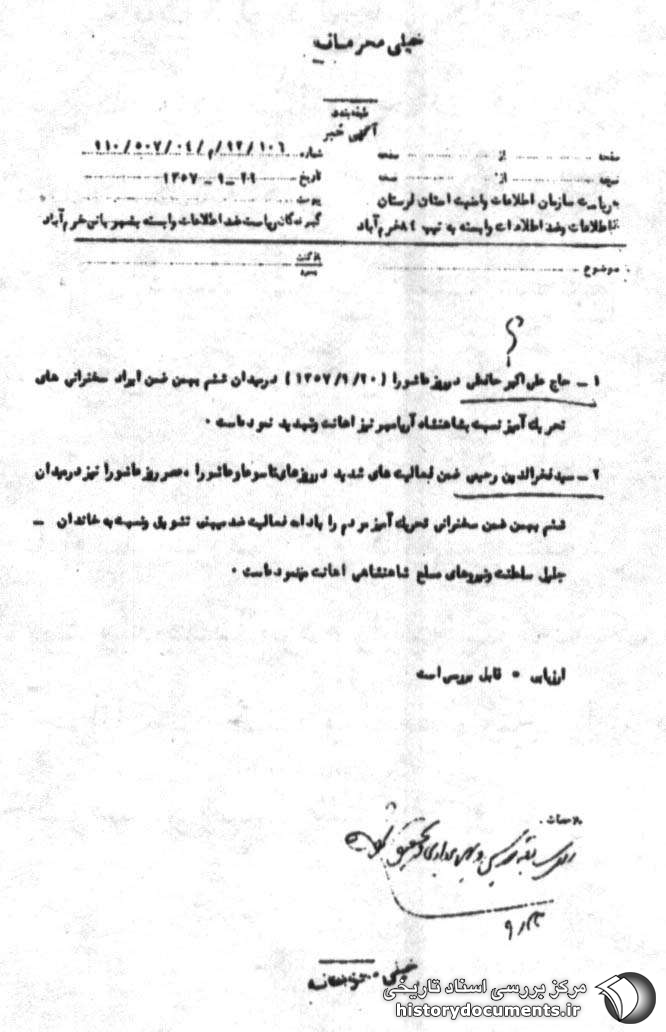 خیلی محرمانه
طبقه‌بندی
آگهی خبر
صفحه ... از ... صفحه
شماره ۱۱۰/۵۰۷/۰۴/م/۹۲/۱۰۶
نسخه ... از ... نسخه
تاریخ ۲۹-۹-۱۳۵۷
به ریاست سازمان اطلاعات وامنیت استان لرستان
پیوست
اطلاعات وضد اطلاعات وابسته به تیپ ۸۴ خرم آباد
گیرندگان ریاست ضد اطلاعات وابسته بشهربانی خرم آباد
موضوع
بازگشت
۱ - حاج علی اکبر درروز عاشورا (۱۳۵۷/۹/۲۰) درمیدان ششم بهمن ضمن ایراد سخنرانی های
تحریک آمیز نسبت بشاهنشاه آریامهر نیز اهانت وتهدید نموده است .
۲ - سید فخرالدین رحیمی ضمن فعالیت های شدید درروزهای تاسوعا وعاشورا ، عصر روز عاشورا نیز درمیدان
ششم بهمن ضمن سخنرانی تحریک آمیز مردم را بادامه فعالیت ضد میهنی تشویق ونسبت به خاندان -
جلیل سلطنت ونیروهای مسلح شاهنشاهی اهانت مینموده است .
ارزیابی . قابل بررسی است
ملاحظات .
خیلی محرمانه
مرکز بررسی اسناد تاریخی
historydocuments.ir